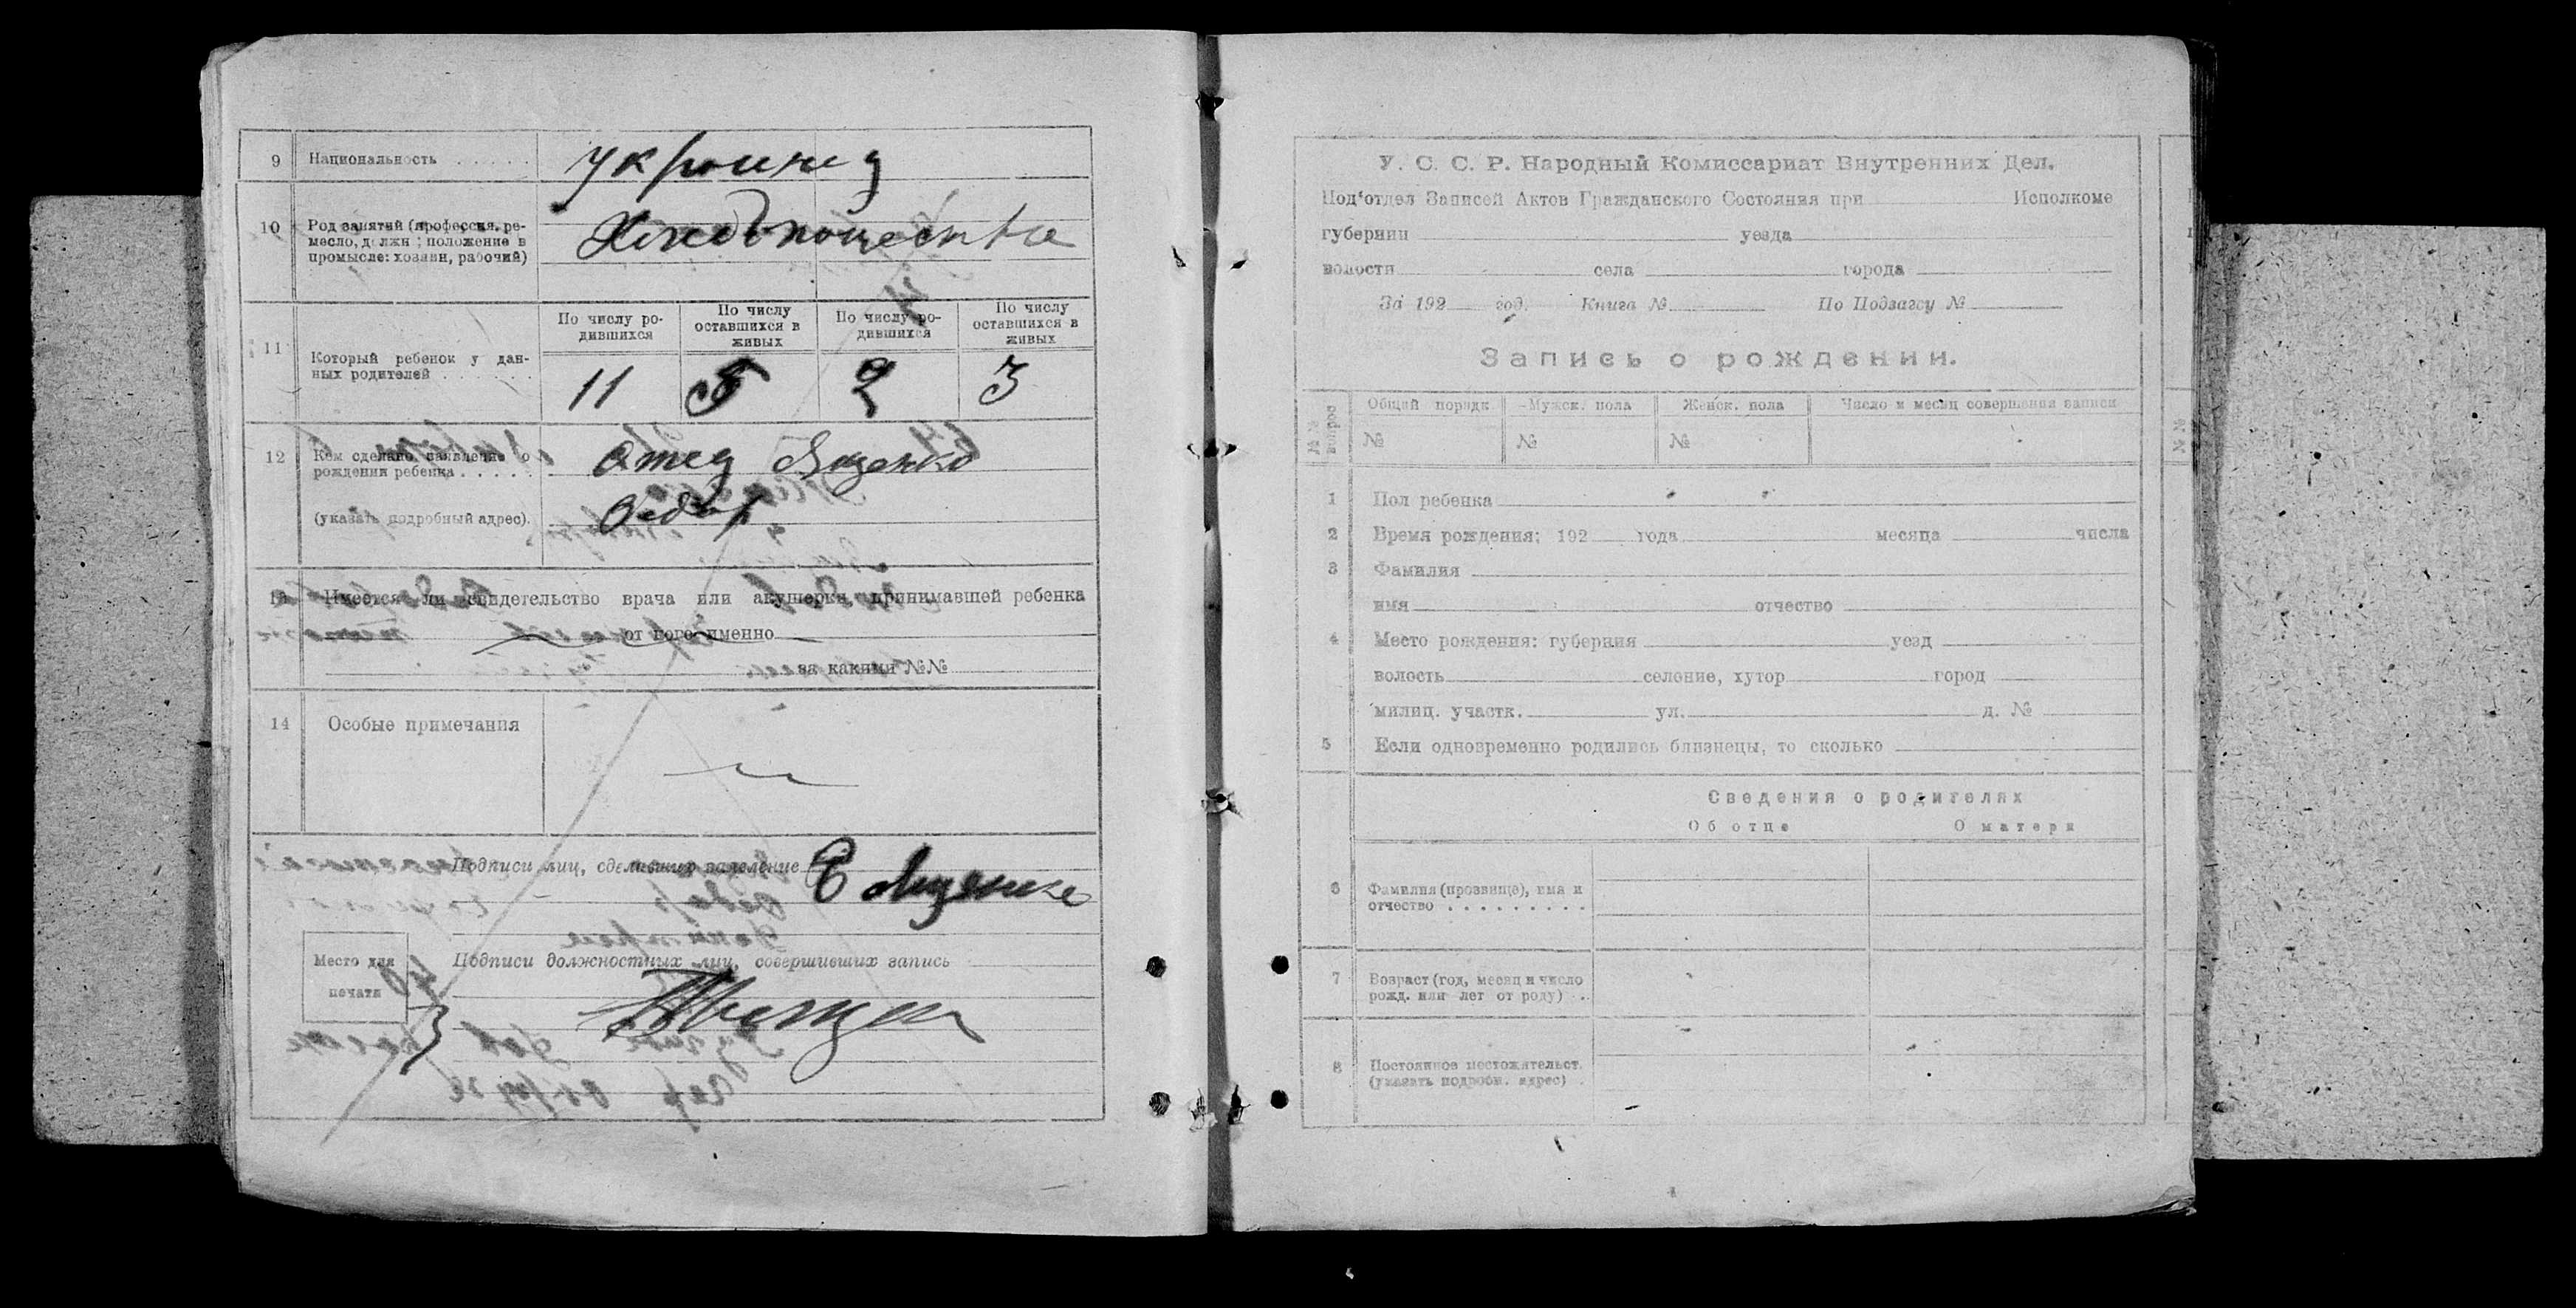 9 Национальность . . . . . украинец
10 Род занятий (профессия, ре-
месло, должн : положение в
промысле: хозяин, рабочий)
По числу ро-
дившихся
По числу
оставшихся в
живых
По числу ро-
дившихся
По числу
оставшихся в
живых
11 Который ребенок у дан-
ных родителей . . . . . . .
11 5 2 3
12 Кем сделано заявление о
рождении ребенка . . . . .
Отец Яценко
(указать подробный адрес).
Федор
13 Имеется ли свидетельство врача или акушерки, принимавшей ребенка
от кого именно
за какими №№
14 Особые примечания
Подписи лиц, сделавших заявление
Подписи должностных лиц, совершивших запись
Место для
печати
У. С. С. Р. Народный Комиссариат Внутренних Дел.
Под'отдел Записей Актов Гражданского Состояния при Исполкоме
губернии уезда
волости села города
За 192 год. Книга № По Подзагсу №
Запись о рождении.
№№ вопрос
Общий порядк Мужск. пола Женск. пола Число и месяц совершения записи
№ № №
1 Пол ребенка
2 Время рождения: 192 года месяца числа
3 Фамилия
имя отчество
4 Место рождения: губерния уезд
волость селение, хутор город
милиц. участк. ул. д. №
5 Если одновременно родились близнецы, то сколько
Сведения о родителях
Об отце О матери
6 Фамилия (прозвище), имя и
отчество . . . . . . . . .
7 Возраст (год, месяц и число
рожд. или лет от роду) . .
8 Постоянное местожительст.
(указать подробн. адрес) .